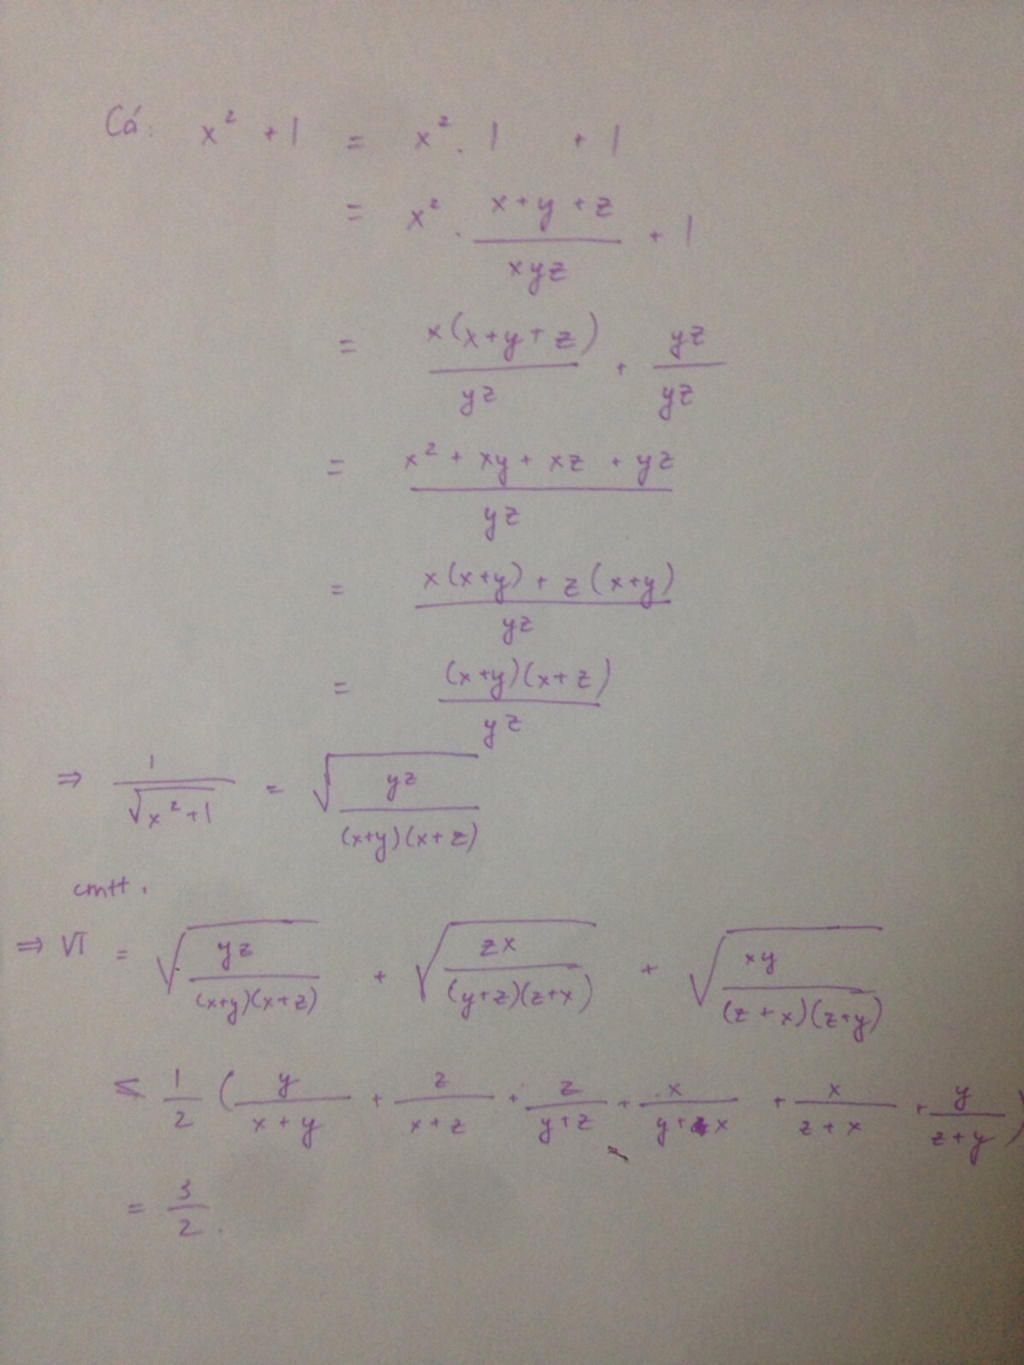 Có: x² + 1 = x² . 1 + 1
= x² . (x+y+z)/(xyz) + 1
= x(x+y+z)/(yz) + yz/yz
= (x² + xy + xz + yz)/(yz)
= (x(x+y) + z(x+y))/(yz)
= ((x+y)(x+z))/(yz)
⇒ 1/√(x²+1) = √(yz/((x+y)(x+z)))
cmtt.
⇒ VT = √(yz/((x+y)(x+z))) + √(zx/((y+z)(z+x))) + √(xy/((z+x)(z+y)))
≤ 1/2 (y/(x+y) + z/(x+z) + z/(y+z) + x/(y+x) + x/(z+x) + y/(z+y))
= 3/2.